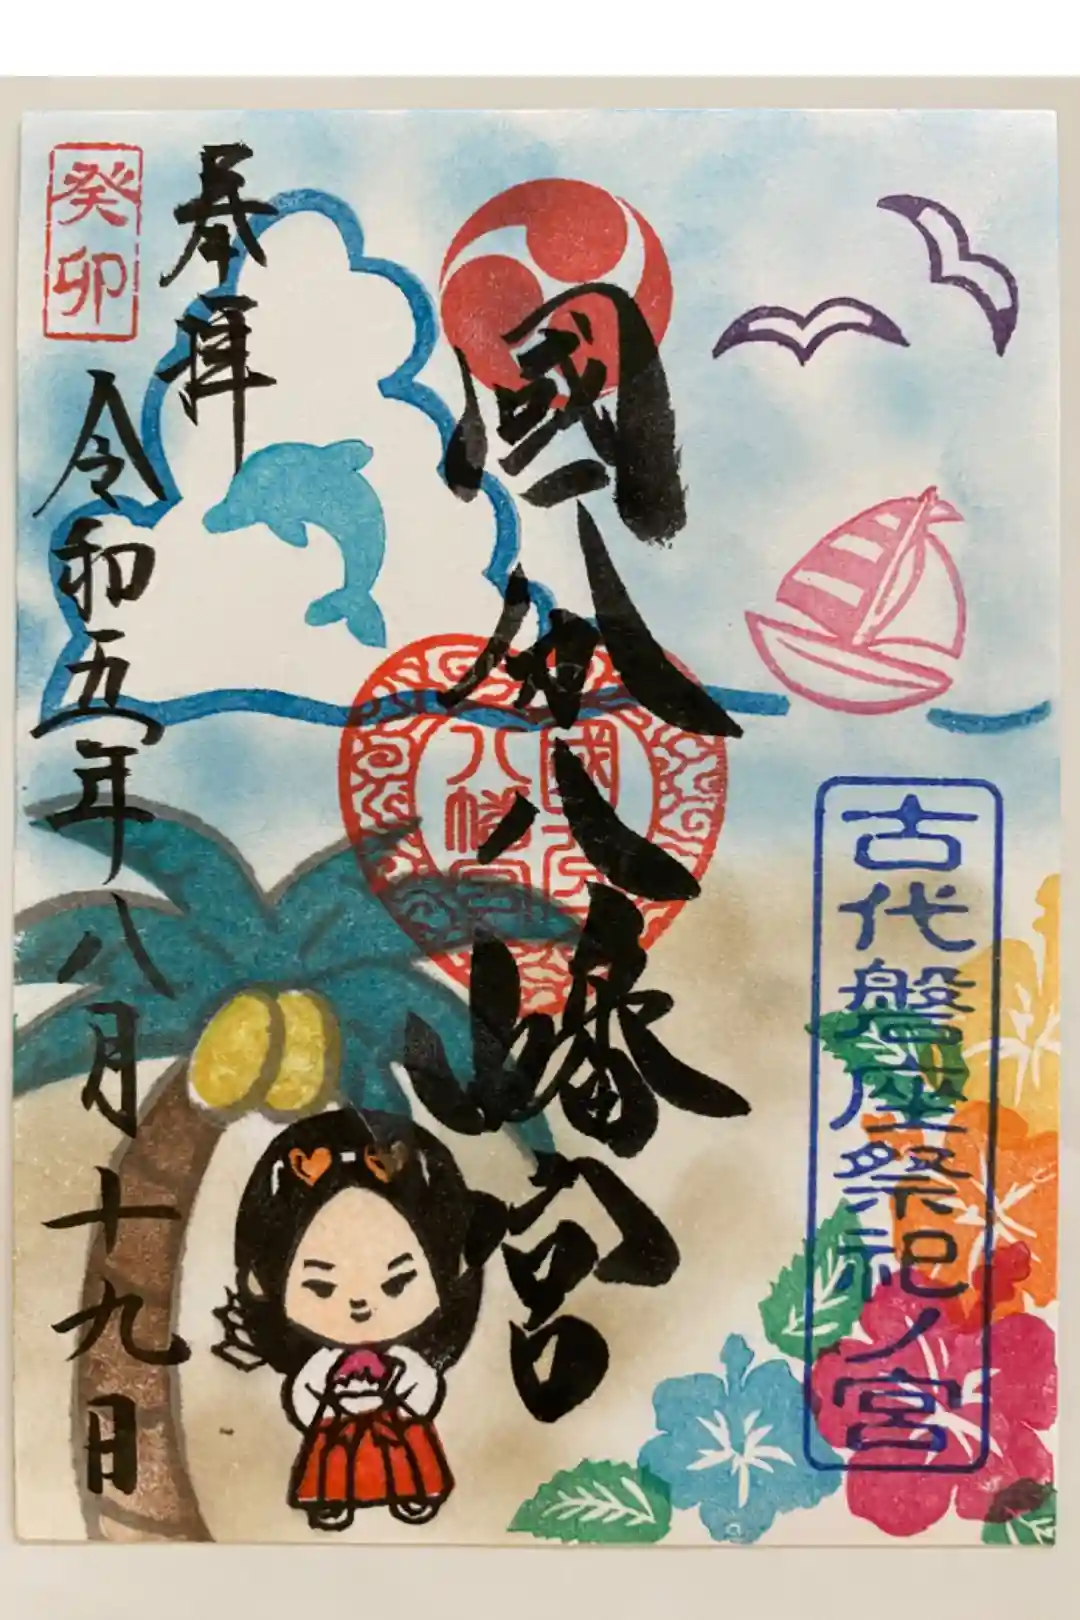 古代磐座祭祀ノ宮
國分八幡宮
國分
八幡宮
奉拝
癸卯
令和五年八月十九日